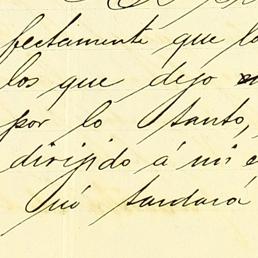 fectamente que lo
los que dejo
por lo tanto,
dirijido á mi
nó tardará